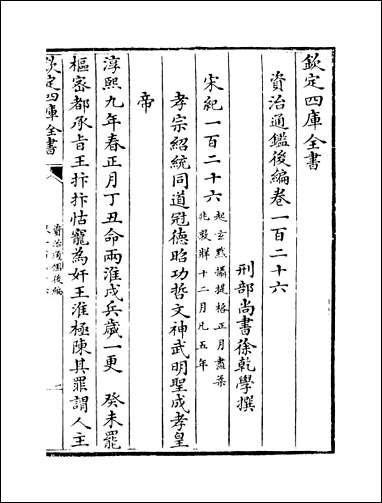 欽定四庫全書
資治通鑑後編卷一百二十六
刑部尚書徐乾學撰
宋紀一百二十六
起玄黓攝提格正月盡柔
兆敦牂十二月凡五年
孝宗紹統同道冠德昭功哲文神武明聖成孝皇
帝
淳熙九年春正月丁丑命兩淮戍兵歲一更　癸未罷
樞密都承㫖王抃抃怙寵為奸王淮極陳其罪謂人主
欽定四庫全書
資治通鑑後編